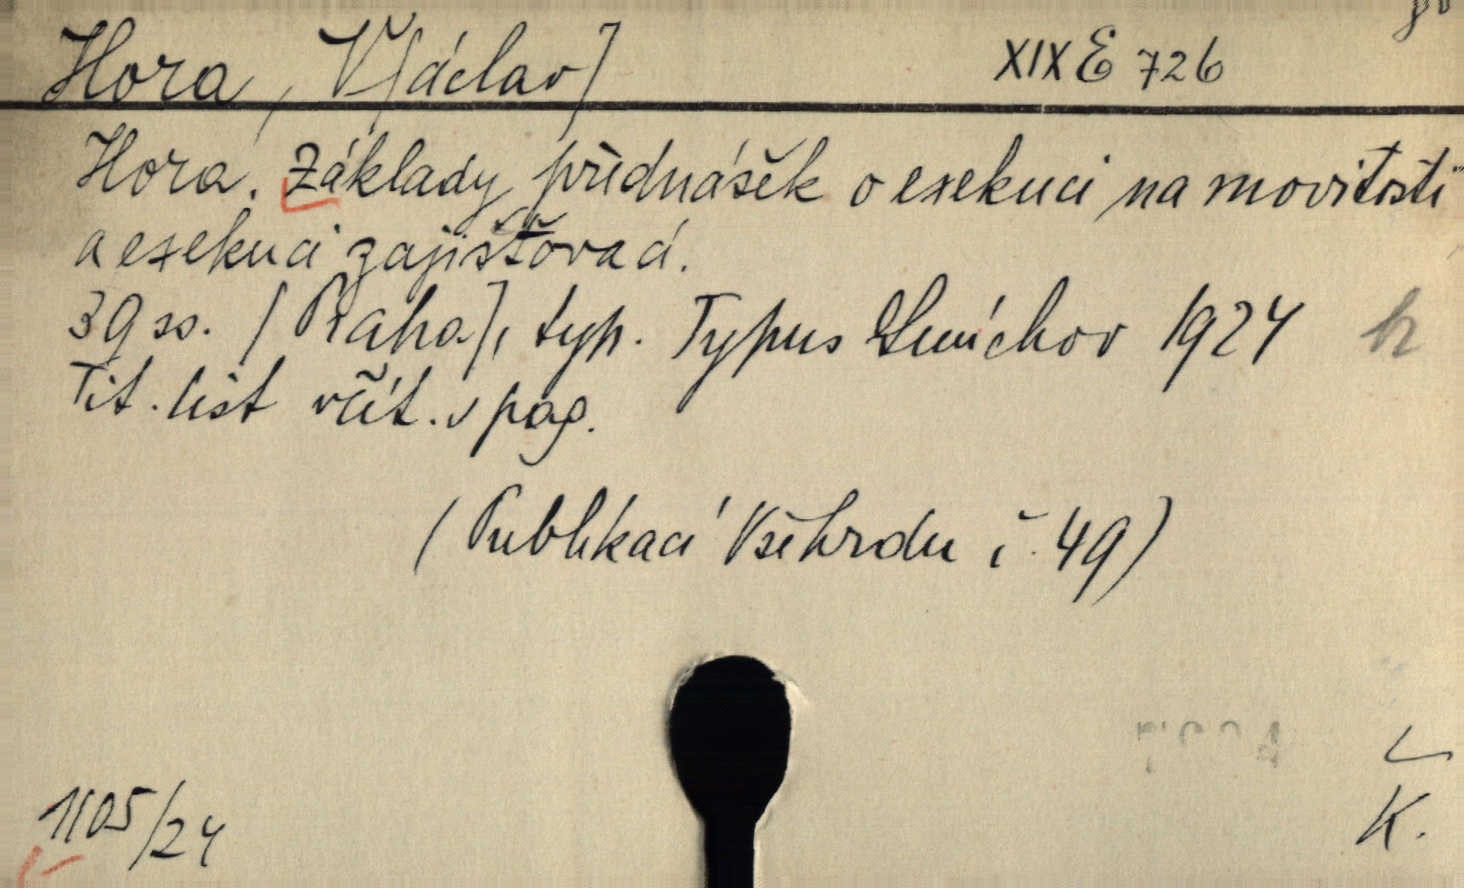 Hora, V[áclav] XIX E 726
Hora. Základy přednášek o exekuci na movitosti
a exekuci zajišťovací.
39 ss. [Praha], typ. Typus Smíchov 1924
Tit. list včít. v pag.
(Publikací Všehrdu č. 49)
1105/24
K.